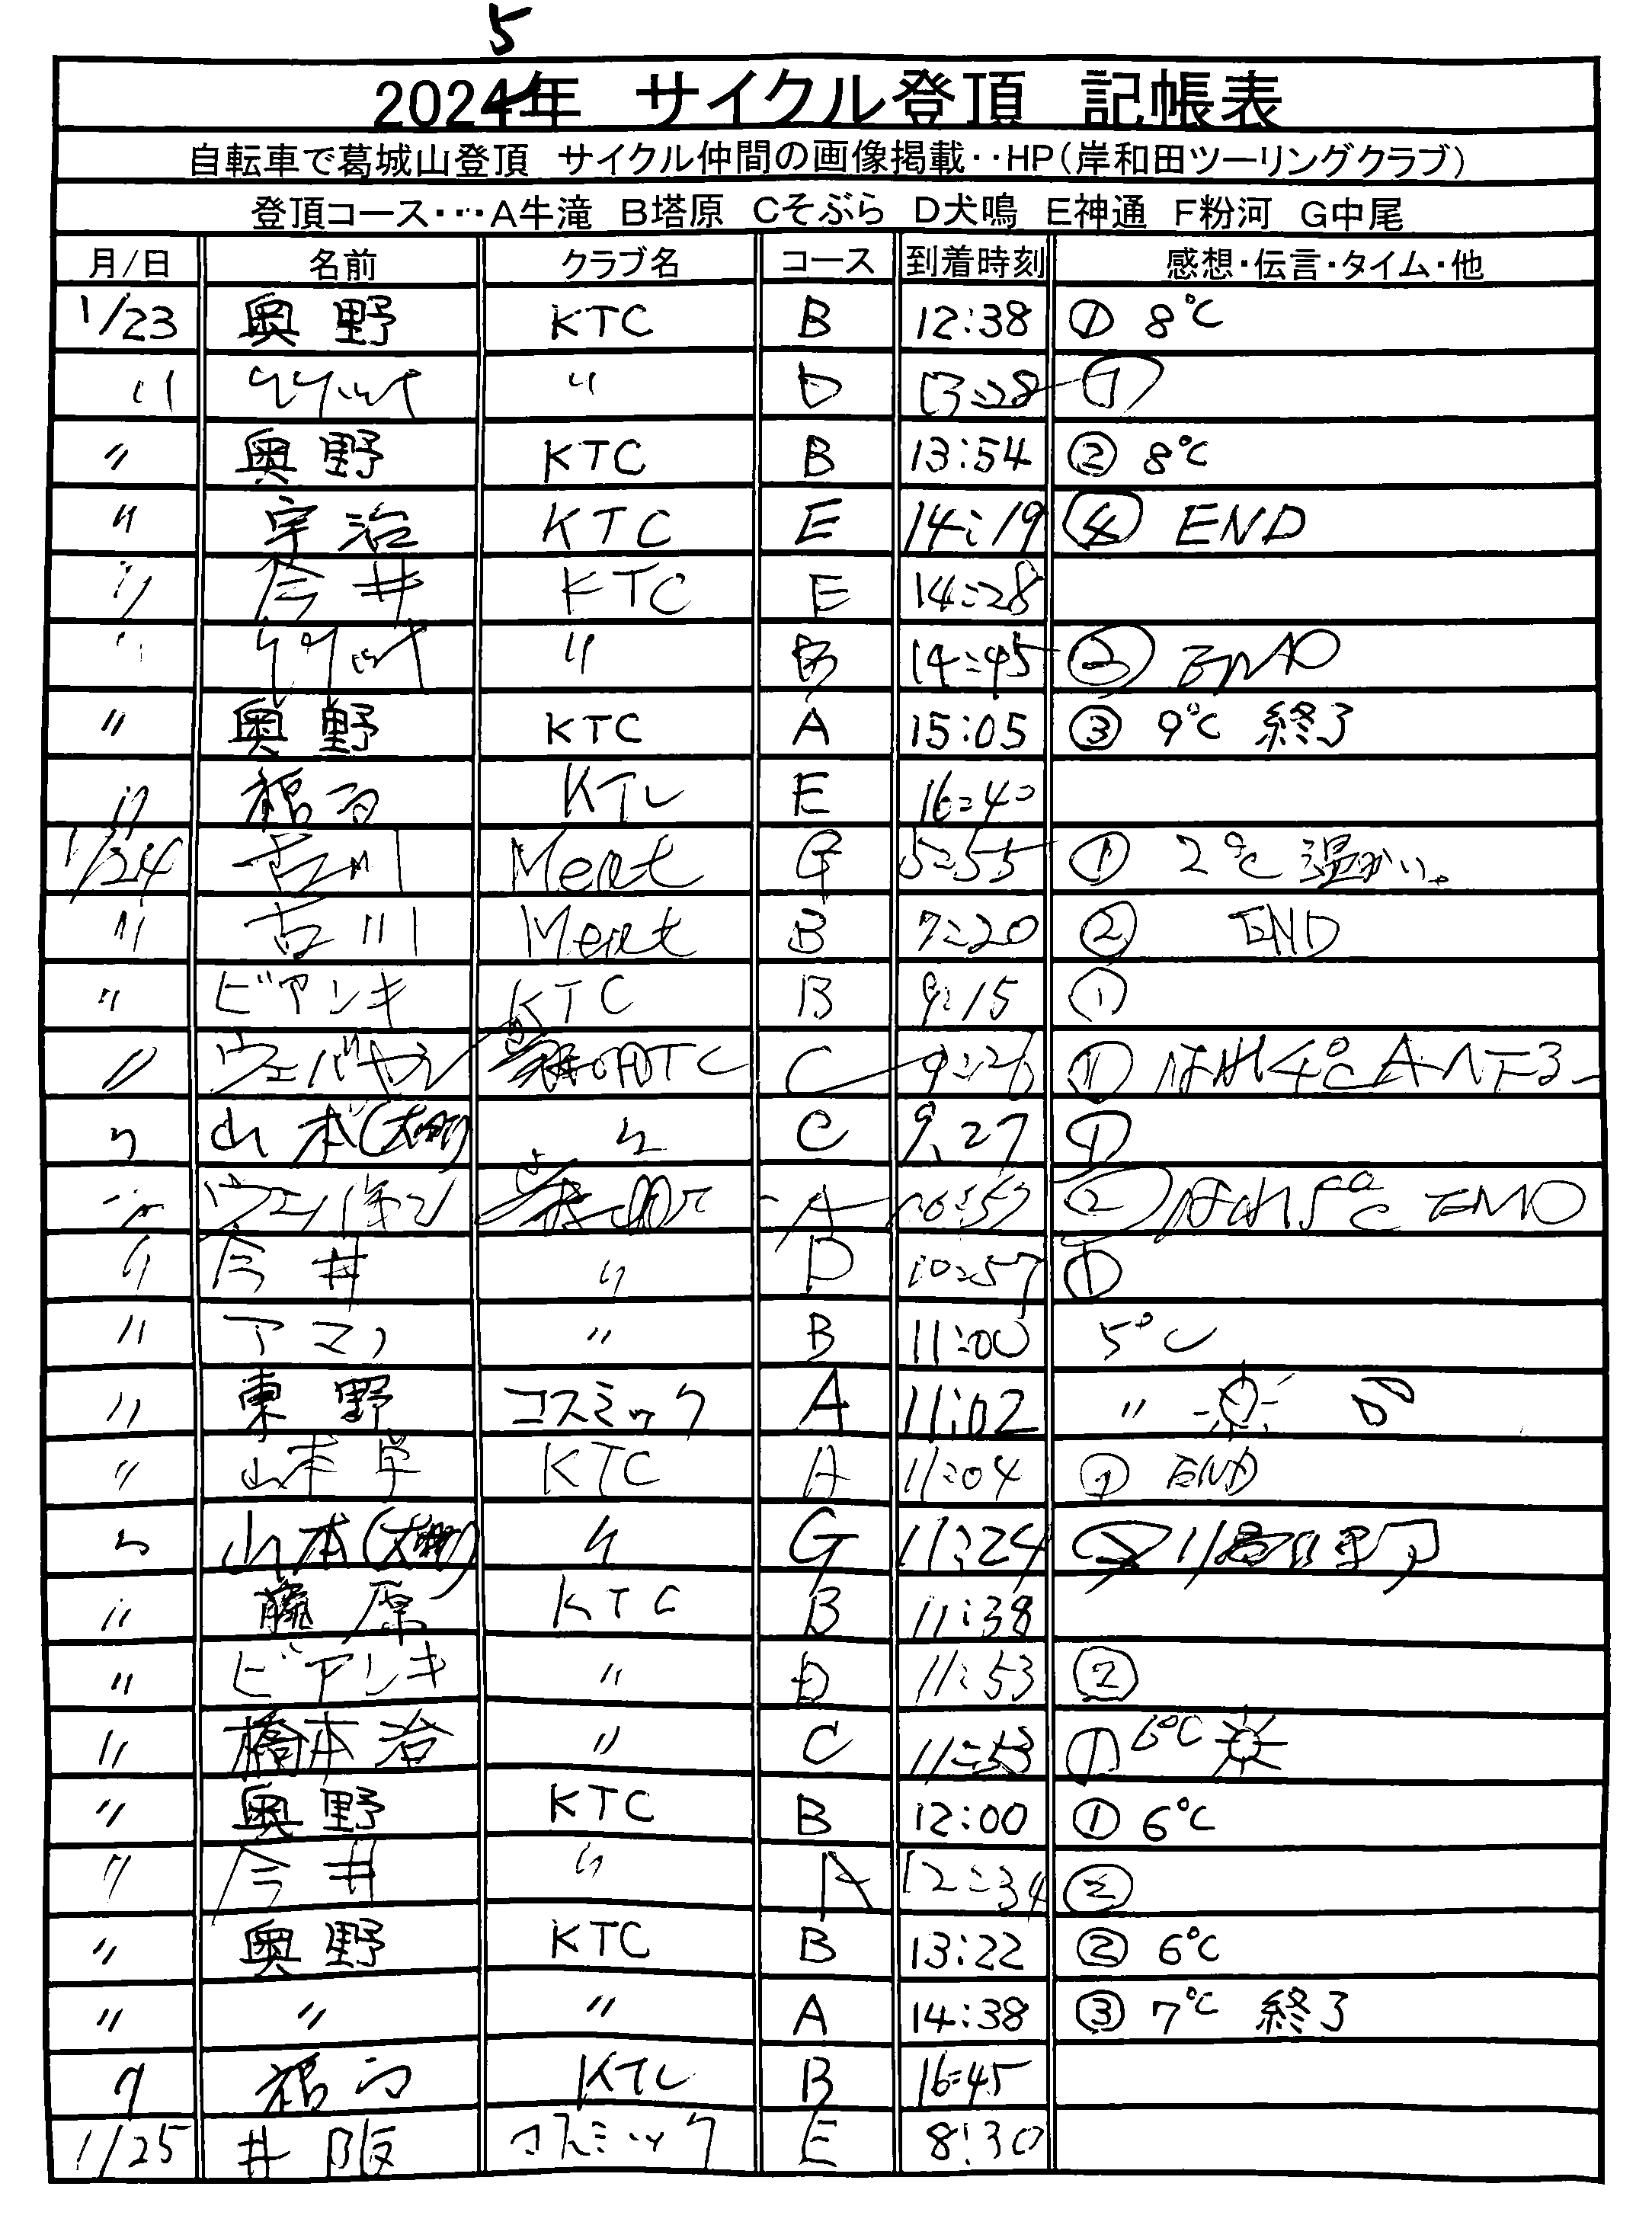 5
2024年 サイクル登頂 記帳表
自転車で葛城山登頂 サイクル仲間の画像掲載‥HP(岸和田ツーリングクラブ)
登頂コース‥・A牛滝 B塔原 Cそぶら D犬鳴 E神通 F粉河 G中尾
月/日 名前 クラブ名 コース 到着時刻 感想・伝言・タイム・他
1/23 奥野 KTC B 12:38 ① 8℃
〃 〃 D 13:28 ①
〃 奥野 KTC B 13:54 ② 8℃
〃 宇治 KTC E 14:19 ④ END
〃 今井 KTC E 14:28
〃 〃 B 14:45 ② END
〃 奥野 KTC A 15:05 ③ 9℃ 終了
〃 KTC E 16:40
1/24 古川 Ment G 5:55 ① 2℃ 温かい。
〃 古川 Ment B 7:20 ② END
〃 ビアンキ KTC B 9:15 ①
〃 C 9:26 ① はれ4℃
〃 山本 〃 C 9:27 ①
〃 A 10:57 ② はれ5℃ END
〃 今井 〃 D 10:57 ①
〃 アマノ 〃 B 11:00 5℃
〃 東野 コスミック A 11:02 〃
〃 山本 KTC A 11:04 ① END
〃 山本 〃 G 11:24 ②
〃 藤原 KTC B 11:38
〃 ビアンキ 〃 D 11:53 ②
〃 橋本治 〃 C 11:53 ① 6℃
〃 奥野 KTC B 12:00 ① 6℃
〃 今井 〃 A 12:34 ②
〃 奥野 KTC B 13:22 ② 6℃
〃 〃 〃 A 14:38 ③ 7℃ 終了
〃 KTC B 16:45
1/25 井阪 コスミック E 8:30